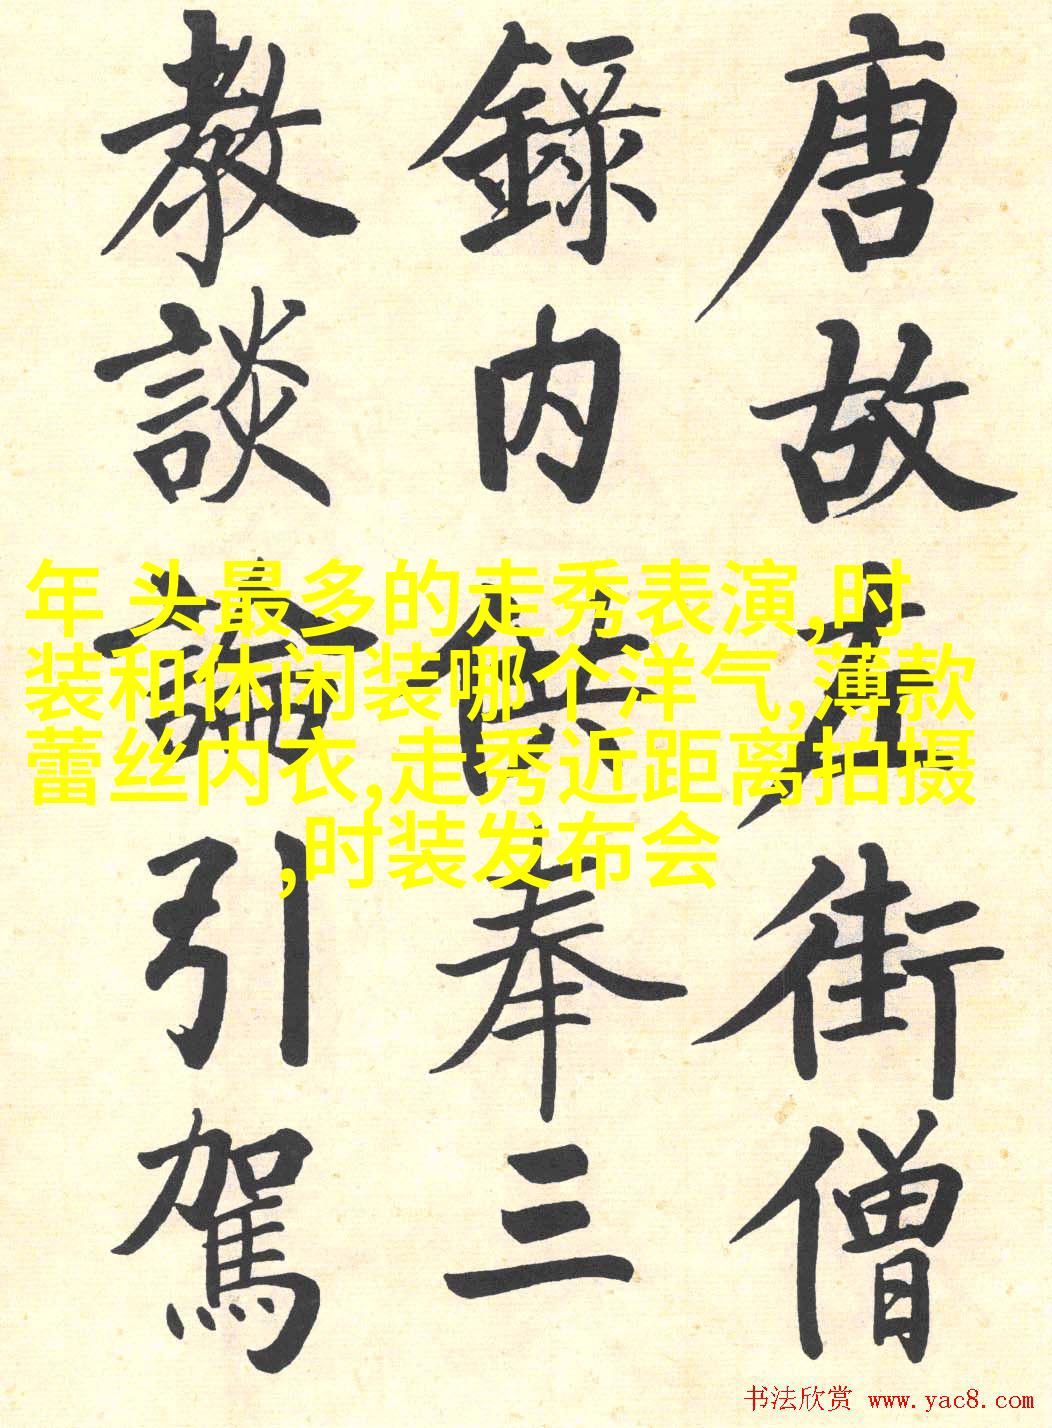 唐故左街僧
錄内供奉三
教談論引駕
年 头最多的走秀表演,时
装和休闲装哪个洋气,薄款
蕾丝内衣,走秀近距离拍摄
,时装发布会
书法欣赏 www.yac8.com